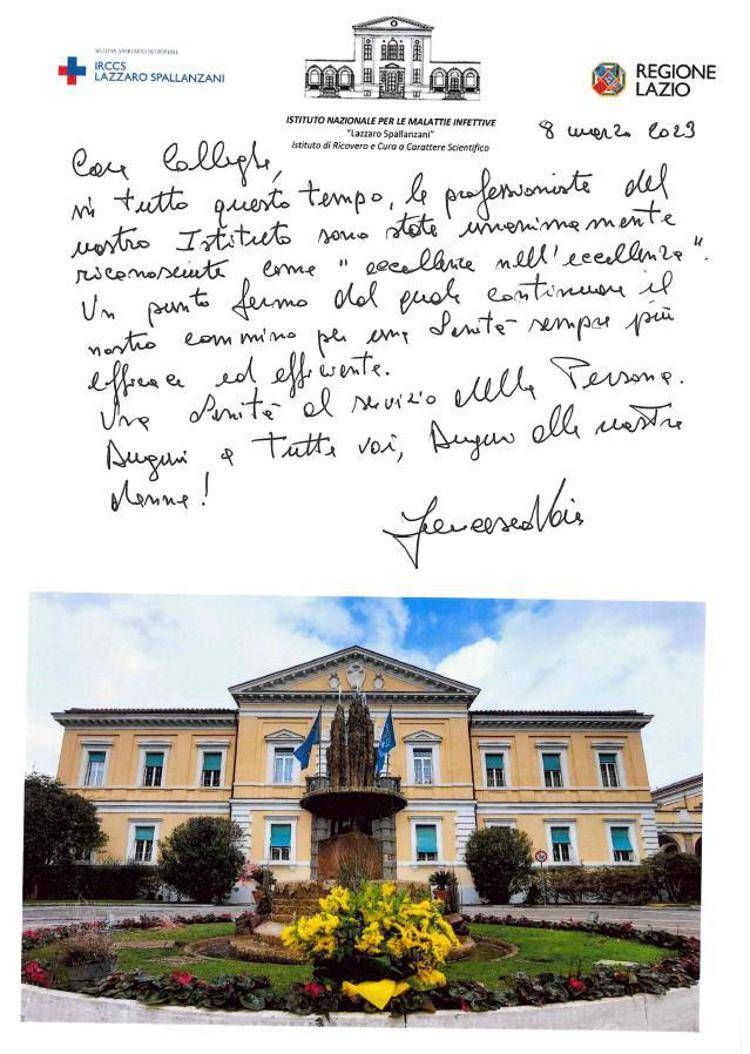 SISTEMA SANITARIO REGIONALE
IRCCS
LAZZARO SPALLANZANI
REGIONE
LAZIO
ISTITUTO NAZIONALE PER LE MALATTIE INFETTIVE
"Lazzaro Spallanzani"
Istituto di Ricovero e Cura a Carattere Scientifico
8 marzo 2023
Care Colleghe,
in tutto questo tempo, le professioniste del
nostro Istituto sono state unanimamente
riconosciute come "eccellenze nell'eccellenza".
Un punto fermo dal quale continuare il
nostro cammino per una Sanità sempre più
efficace ed efficiente.
Una Sanità al servizio della Persona.
Auguri a tutte voi, Auguri alle nostre
donne!
Francesco Vaia